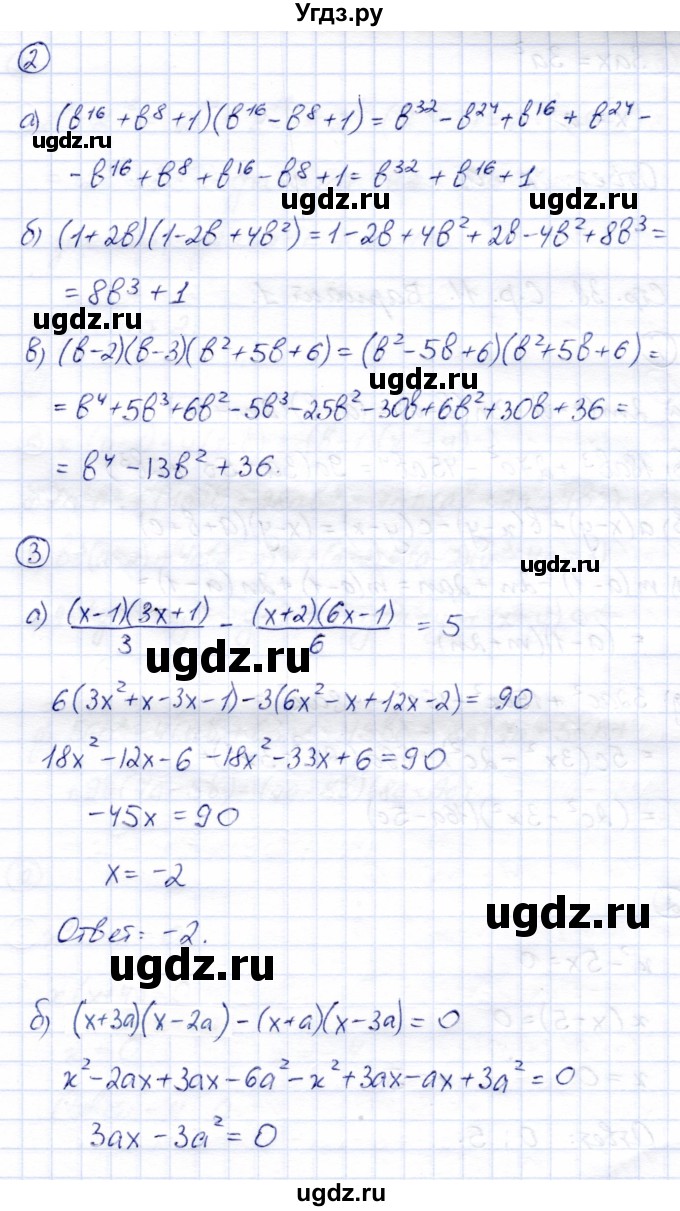 Угдз.ру
2
а) (в¹⁶ + в⁸ + 1)(в¹⁶ - в⁸ + 1) = в³² - в²⁴ + в¹⁶ + в²⁴ -
- в¹⁶ + в⁸ + в¹⁶ - в⁸ + 1 = в³² + в¹⁶ + 1
ugdz.ru
ugdz.ru
б) (1+2в)(1-2в+4в²) = 1-2в+4в²+2в-4в²+8в³ =
= 8в³ + 1
ugdz.ru
в) (в-2)(в-3)(в²+5в+6) = (в²-5в+6)(в²+5в+6) =
ugdz.ru
= в⁴+5в³+6в²-5в³-25в²-30в+6в²+30в+36 =
= в⁴ - 13в² + 36.
3
ugdz.ru
а) (x-1)(3x+1)/3 - (x+2)(6x-1)/6 = 5
ugdz.ru
6(3x²+x-3x-1)-3(6x²-x+12x-2) = 90
18x²-12x-6-18x²-33x+6=90
-45x = 90
x = -2
ugdz.ru
Ответ: -2.
ugdz.ru
б) (x+3a)(x-2a) - (x+a)(x-3a) = 0
x²-2ax+3ax-6a²-x²+3ax-ax+3a²=0
3ax - 3a² = 0
ugdz.ru
ugdz.ru